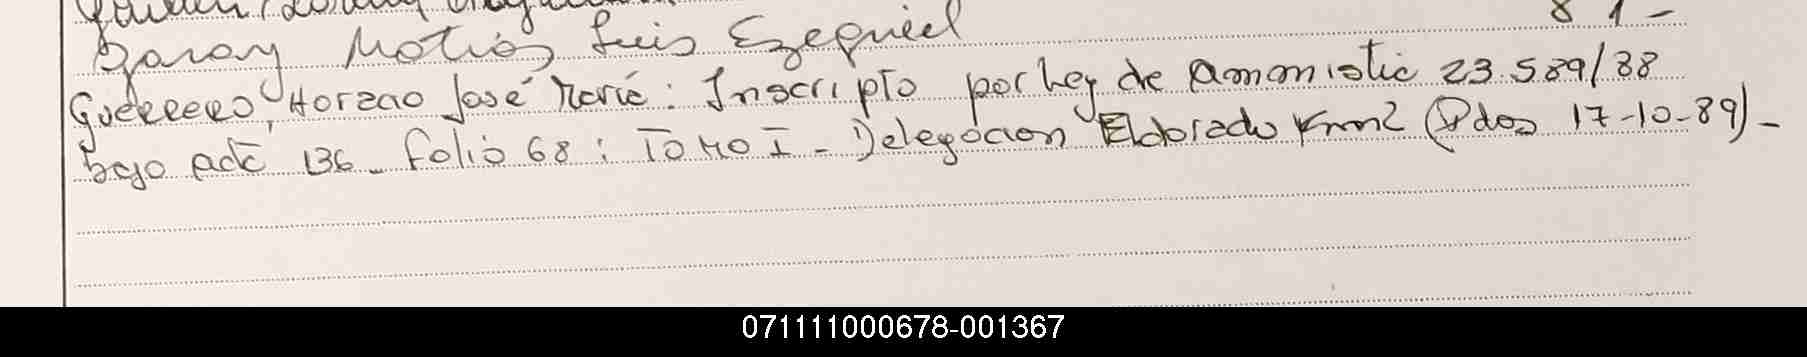 8 1 -
Garay Matias Luis Ezequiel
Guerrero, Horacio José María: Inscripto por Ley de Amnistia 23.589/88
bajo acta 136 - Folio 68: TOMO I - Delegación Eldorado Km 2 (Pdos 17-10-89) -
071111000678-001367